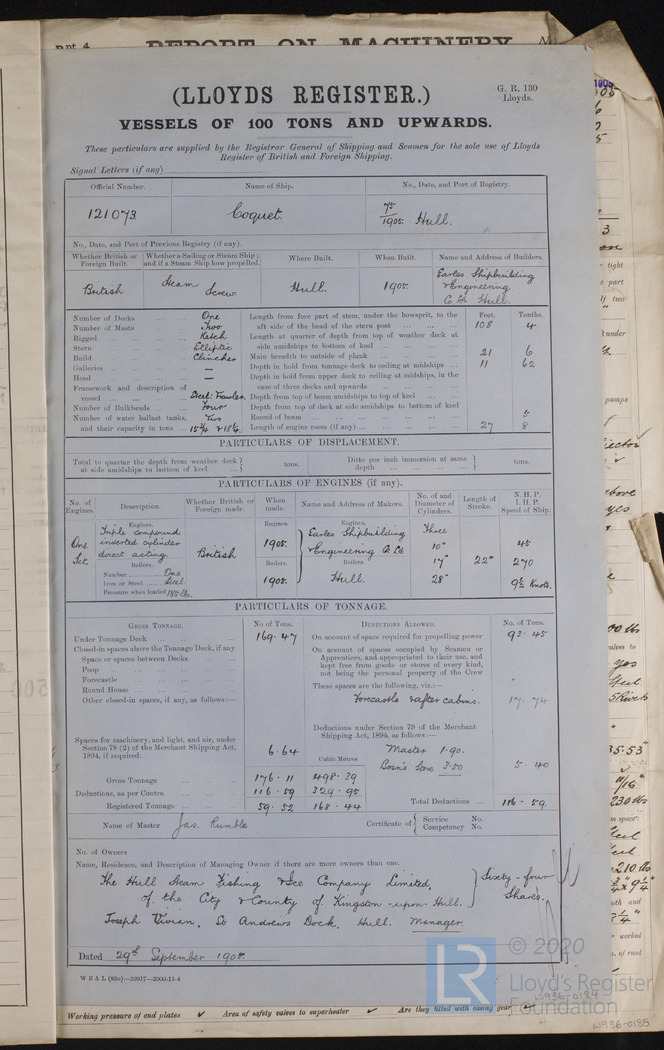 Rpt. 4.
REPORT ON MACHINERY
(LLOYDS REGISTER.)
G. R. 130
Lloyds.
VESSELS OF 100 TONS AND UPWARDS.
These particulars are supplied by the Registrar General of Shipping and Seamen for the sole use of Lloyds
Register of British and Foreign Shipping.
Signal Letters (if any)
Official Number. Name of Ship. No., Date, and Port of Registry.
121073. Coquet. 75/1905. Hull.
No., Date, and Port of Previous Registry (if any).
Whether British or Foreign Built. Whether a Sailing or Steam Ship; and if a Steam Ship how propelled. Where Built. When Built. Name and Address of Builders.
British Steam Screw Hull. 1905. Earles Shipbuilding & Engineering Co. Ld Hull.
Number of Decks One
Number of Masts Two
Rigged Ketch
Stern Elliptic
Build Clincher
Galleries —
Head —
Framework and description of vessel Steel: Trawler.
Number of Bulkheads Four
Number of water ballast tanks, and their capacity in tons Two
Feet. Tenths.
Length from fore part of stem, under the bowsprit, to the aft side of the head of the stern post 108 4
Length at quarter of depth from top of weather deck at side amidships to bottom of keel
Main breadth to outside of plank 21 6
Depth in hold from tonnage deck to ceiling at midships 11 62
Depth in hold from upper deck to ceiling at midships, in the case of three decks and upwards
Depth from top of beam amidships to top of keel
Depth from top of deck at side amidships to bottom of keel
Round of beam 5
Length of engine room (if any) 27 8
PARTICULARS OF DISPLACEMENT.
Total to quarter the depth from weather deck at side amidships to bottom of keel tons. Ditto per inch immersion at same depth tons.
PARTICULARS OF ENGINES (if any).
No. of Engines. Description. Whether British or Foreign made. When made. Name and Address of Makers. No. of and Diameter of Cylinders. Length of Stroke. N. H. P. I. H. P. Speed of Ship.
Engines. Engines. Engines.
One Set. Triple compound inverted cylinder direct acting. British 1905. Earles Shipbuilding & Engineering Co. Ld Hull. Three 10" 17" 28" 22" 45 270 9½ Knots.
Boilers. Boilers. Boilers.
Number One 1905.
Iron or Steel Steel.
Pressure when loaded 185 lbs.
PARTICULARS OF TONNAGE.
GROSS TONNAGE. No of Tons. DEDUCTIONS ALLOWED. No. of Tons.
Under Tonnage Deck 169.47
Closed-in spaces above the Tonnage Deck, if any
Space or spaces between Decks
Poop
Forecastle
Round House
Other closed-in spaces, if any, as follows:—
Spaces for machinery, and light, and air, under Section 78 (2) of the Merchant Shipping Act, 1894, if required. 6.64
Cubic Metres
Gross Tonnage 176.11 498.39
Deductions, as per Contra 116.59 329.95
Registered Tonnage 59.52 168.44
On account of space required for propelling power 93.45
On account of spaces occupied by Seamen or Apprentices, and appropriated to their use, and kept free from goods or stores of every kind, not being the personal property of the Crew
These spaces are the following, viz.:—
Forecastle & after cabins. 17.74
Deductions under Section 79 of the Merchant Shipping Act, 1894, as follows:—
Master 1.90.
Bosn's Store 3.50 5.40
Total Deductions 116.59
Name of Master Jas. Rumble Certificate of Service No. Competency No.
No. of Owners
Name, Residence, and Description of Managing Owner if there are more owners than one.
The Hull Steam Fishing & Ice Company Limited, Sixty-four
of the City & County of Kingston-upon-Hull. Shares.
Joseph Vivian, St Andrews Dock, Hull. Manager.
Dated 29th September 1905.
W B & L (83c)—30917—2000-11-4
© 2020
LR
Lloyd's Register
Foundation
W936-0184
Working pressure of end plates Area of safety valves to superheater Are they fitted with easing gear
W936-0185